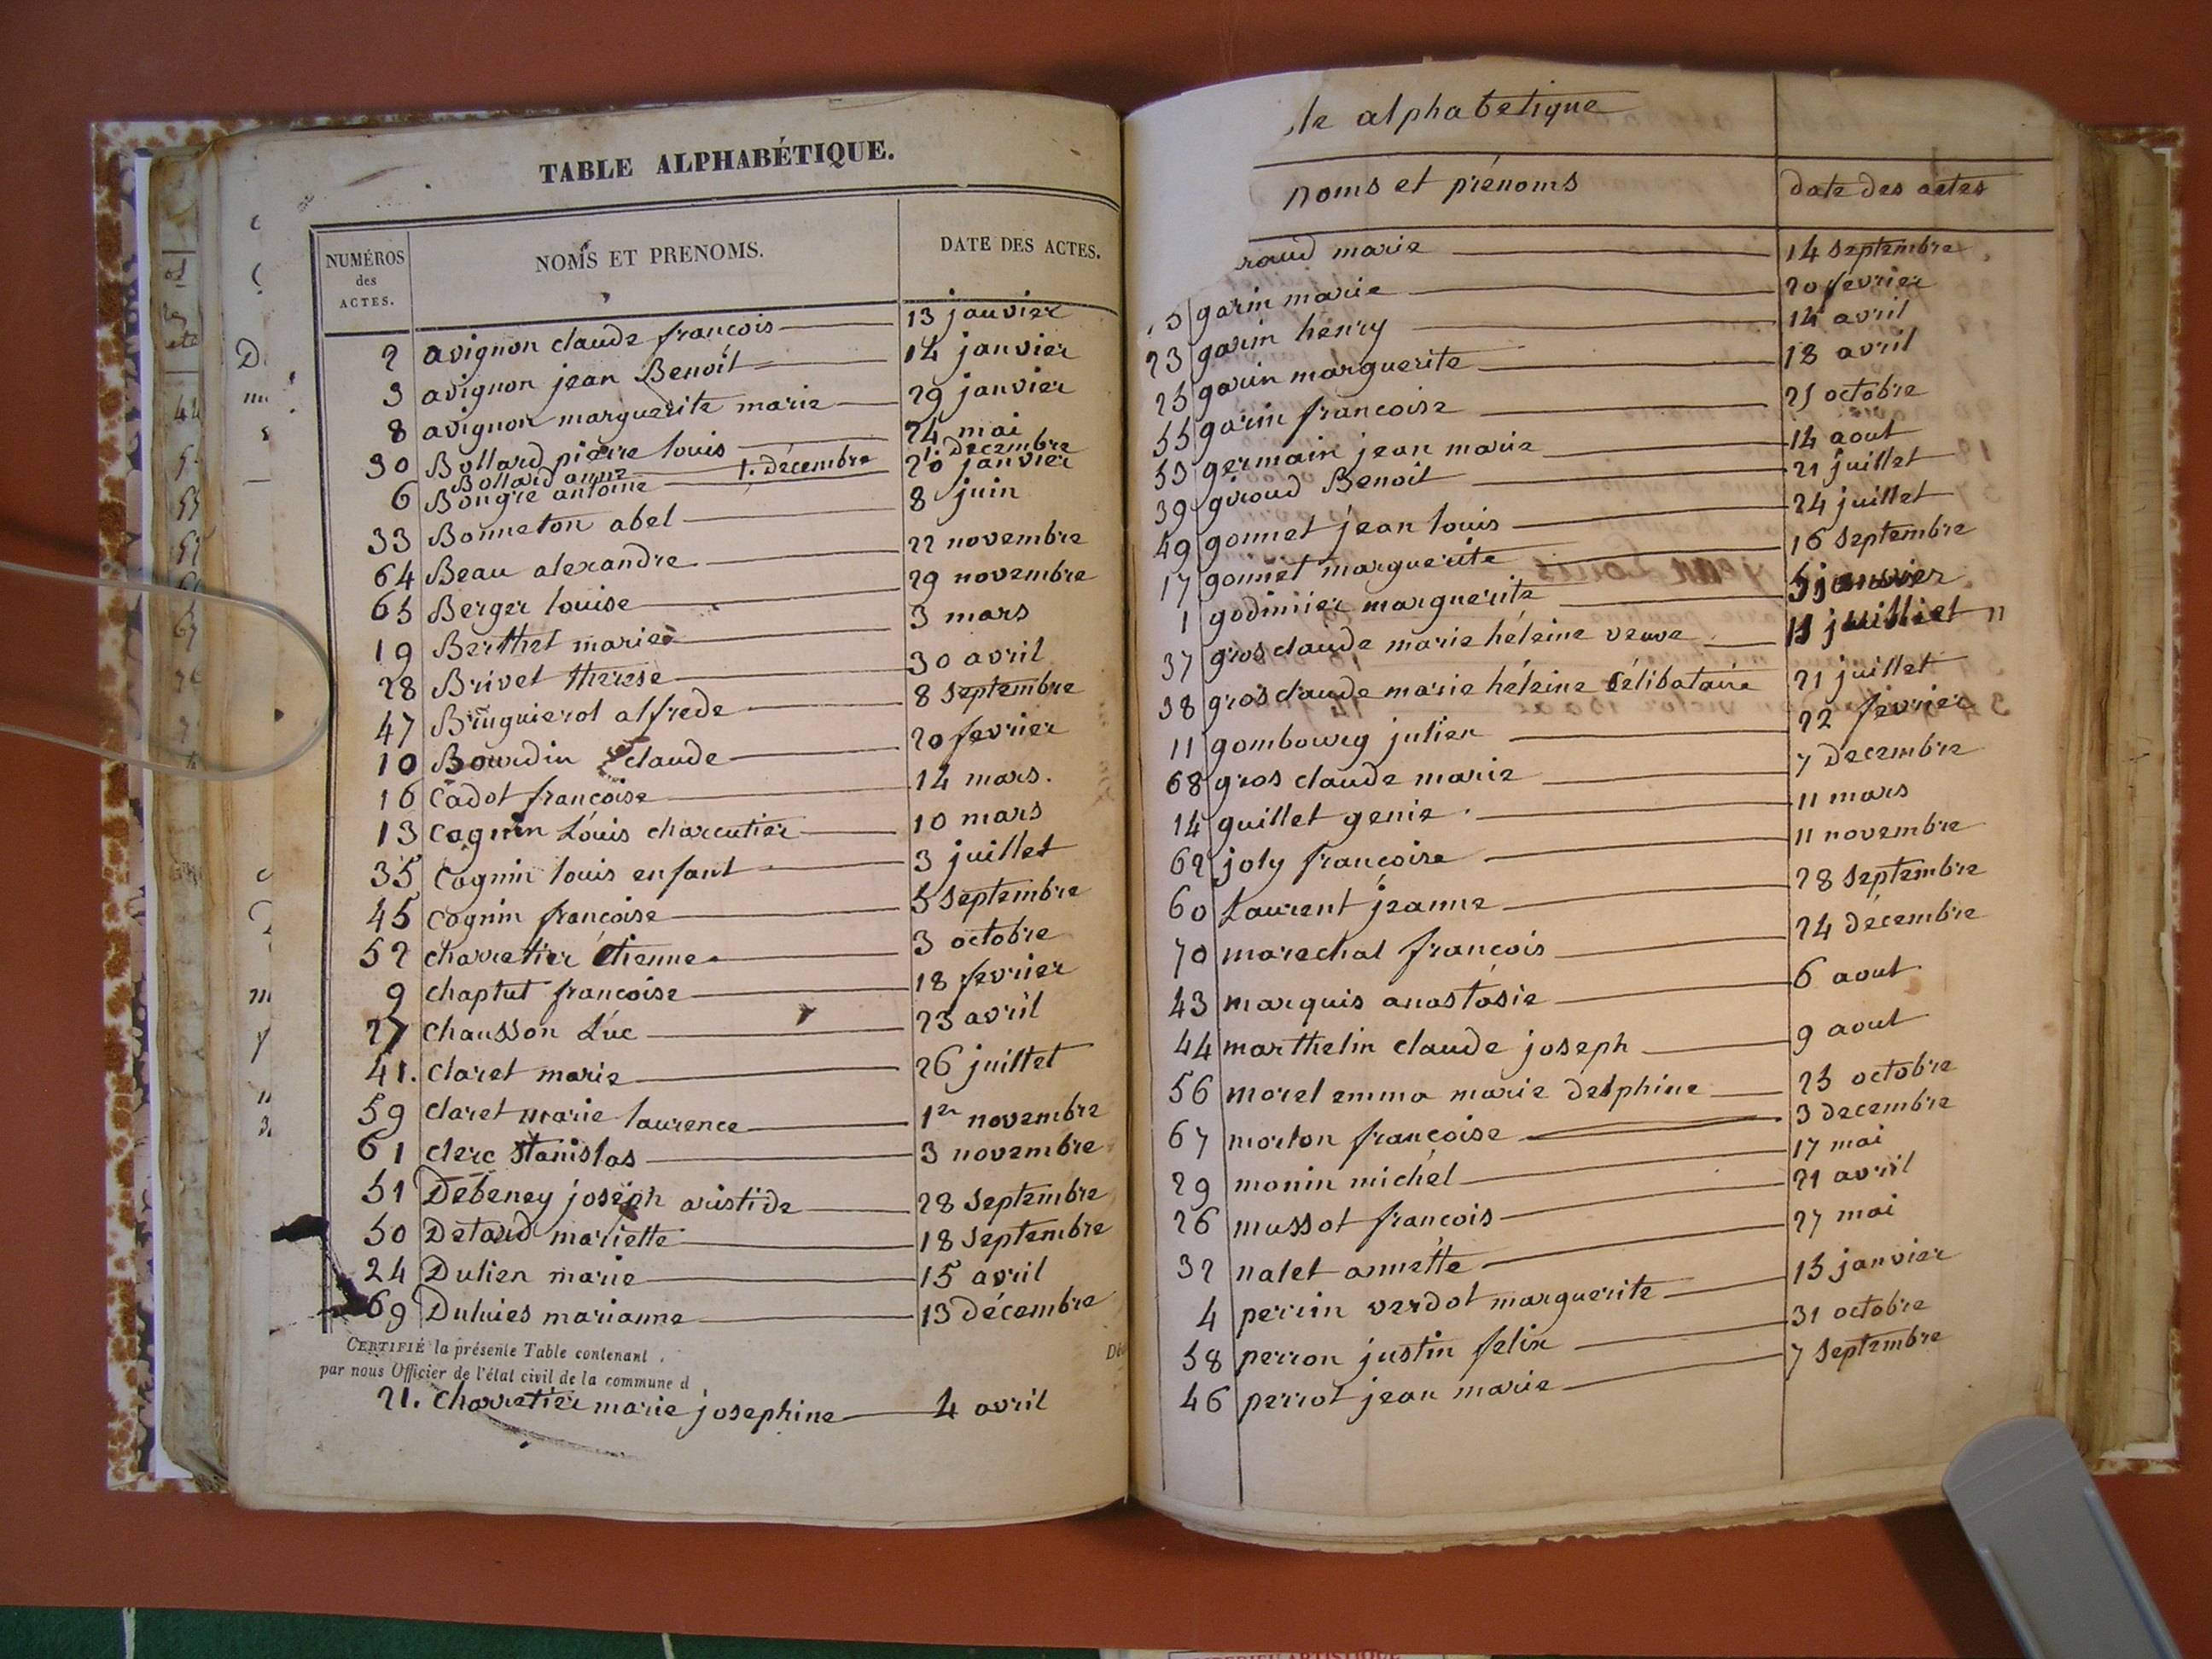 TABLE ALPHABÉTIQUE.
NUMÉROS des ACTES. NOMS ET PRENOMS. DATE DES ACTES.
2 avignon claude francois 13 janvier
3 avignon jean Benoit 14 janvier
8 avignon marguerite marie 29 janvier
30 Bollard pierre louis 24 mai
Bollard anne 1. décembre 1. decembre
6 Bongre antoine 20 janvier
33 Bonneton abel 8 juin
64 Beau alexandre 22 novembre
65 Berger louise 29 novembre
19 Berthet marie 3 mars
28 Brivet therese 30 avril
47 Bruguierot alfrede 8 septembre
10 Bourdin claude 20 fevrier
16 Cadot francoise 14 mars.
13 Cognin Louis charcutier 10 mars
35 Cognin louis enfant 3 juillet
45 Cognin francoise 5 septembre
52 charretier Etienne 3 octobre
9 chaptut francoise 18 fevrier
27 chausson Luc 23 avril
41. claret marie 26 juillet
59 claret marie laurence 1er novembre
61 clerc Stanislas 3 novembre
51 Debeney joseph aristide 28 septembre
50 Detaud mariette 18 septembre
24 Dulien marie 15 avril
69 marianne 13 décembre
CERTIFIÉ la présente Table contenant
par nous Officier de l'état civil de la commune d
21. charretier marie josephine 4 avril
le alphabetique
noms et prénoms date des actes
raud marie 14 septembre
5 garin marie 20 fevrier
23 garin henry 14 avril
25 garin marguerite 18 avril
55 garin francoise 25 octobre
53 germain jean marie 14 aout
39 giroud Benoit 21 juillet
49 gonnet jean louis 24 juillet
17 gonnet marguerite 16 septembre
1 godinier marguerite 5 janvier
37 gros claude marie héleine veuve juilliet
38 gros claude marie héleine Célibataire 21 juillet
11 gombourg julien 22 fevrier
68 gros claude marie 7 decembre
14 guillet genie 11 mars
62 joly françoise 11 novembre
60 Laurent jeanne 28 septembre
70 marechal francois 24 décembre
43 marquis anastasie 6 aout
44 marthelin claude joseph 9 aout
56 morel emma marie delphine 25 octobre
67 morlon françoise 3 decembre
29 monin michel 17 mai
26 mussot francois 21 avril
32 nalet annette 27 mai
4 perrin verdot marguerite 15 janvier
58 perron justin felix 31 octobre
46 perrot jean marie 7 septembre